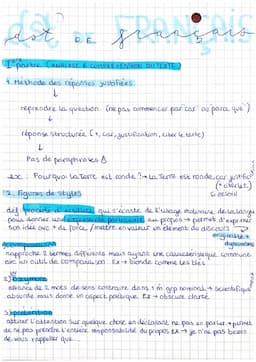 dst DE français
1ère partie (ANALYSE & COMPRÉHENSION DU TEXTE)
1. Méthode des réponses justifiées
↓
reprendre la question (ne pas commencer par "car" ou "parce que")
↓
réponse structurée (+, car, justification, citer le texte)
↓
Pas de paraphrases ⚠
ex : Pourquoi la Terre est ronde ? → La Terre est ronde, car justifié
(+ citer le t.)
2. Figures de styles
def procédé d'écriture qui s'écarte de l'usage ordinaire de la langue
pour donner une expressivité particulière au propos → permet d'exprimer
son idée avec + de force / mettre en valeur un élément du discours
originalité +
dynamisme
rapproche 2 termes différents mais ayant une caractéristique commune
avec un outil de comparaison. Ex → blonde comme les blés
2) Oxymore
alliance de 2 mots de sens contraire dans 1 m gp nominal. → Scientifiq
absurde mais donne un aspect poétique. Ex → obscure clarté.
3) prétérition
attirer l'attention sur quelque chose en déclarant ne pas en parler. → permet
de ne pas prendre l'entière responsabilité du propos. Ex → je n'ai pas besoin
de vous rappeler que...